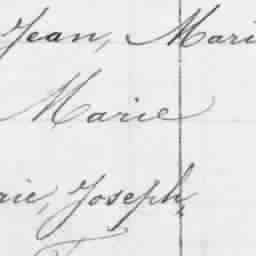 Jean, Mari
Marie
rie, Joseph,